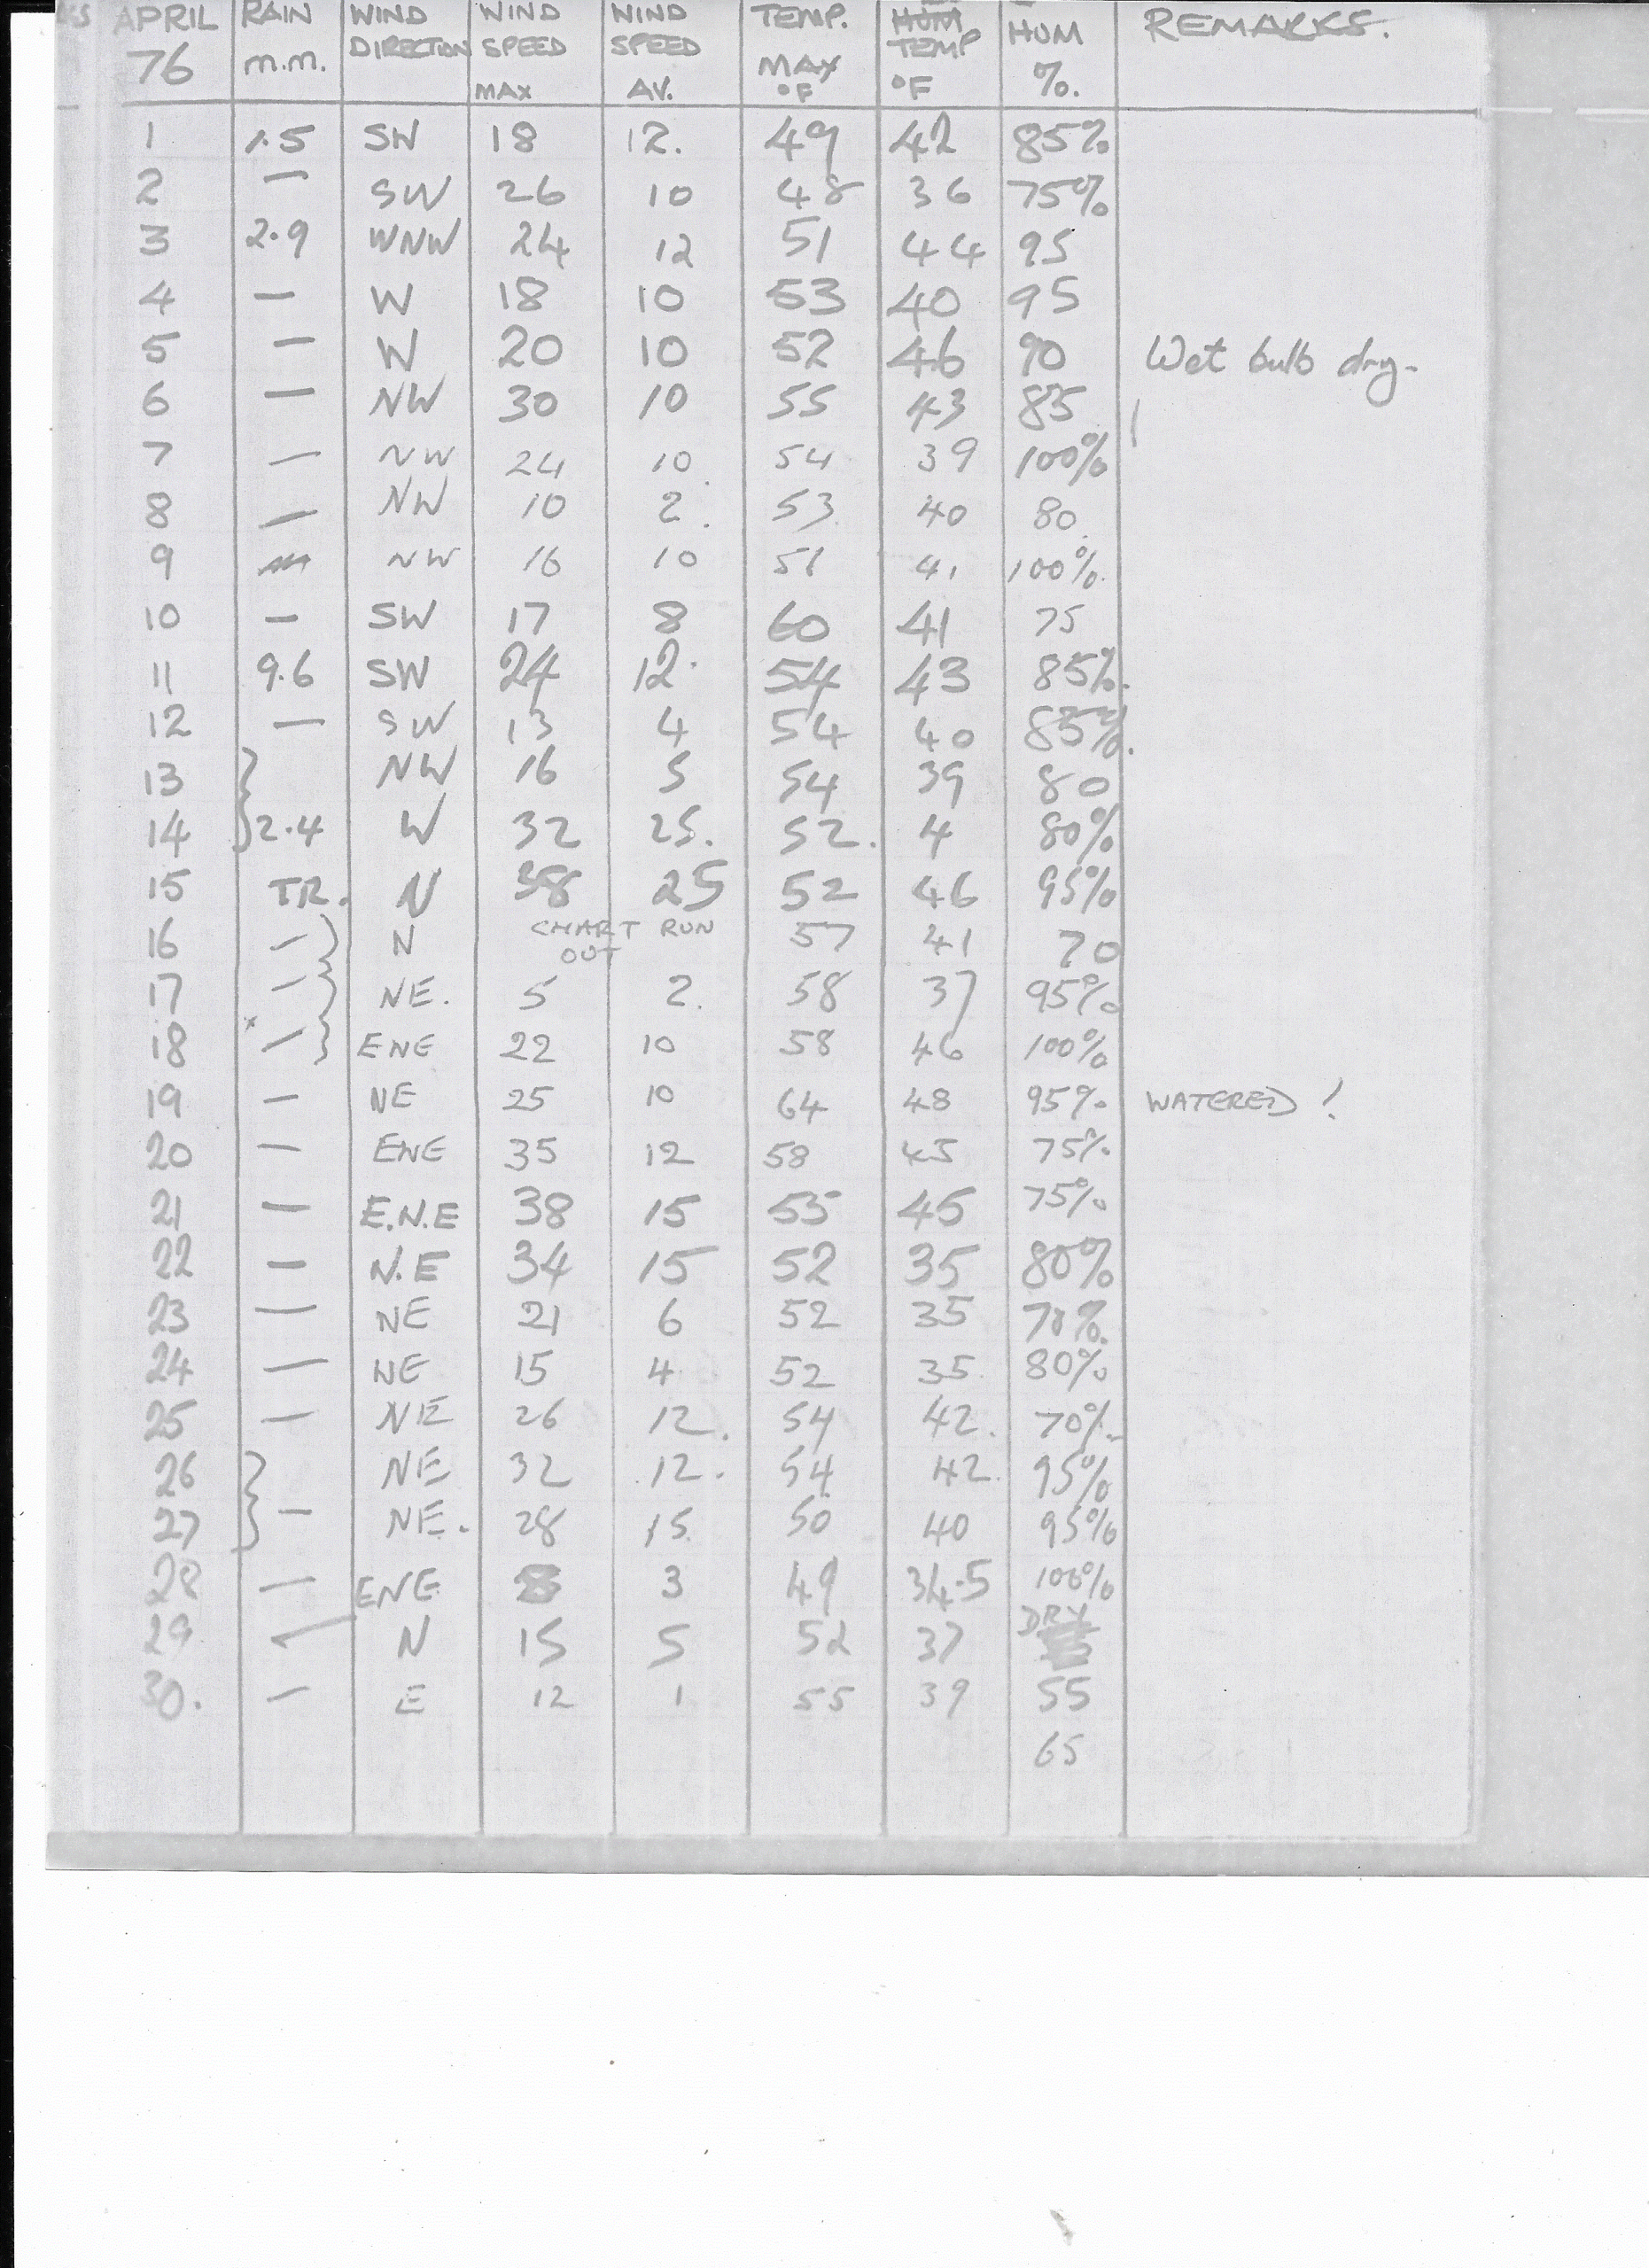 KS APRIL 76 RAIN m.m. WIND DIRECTION WIND SPEED MAX WIND SPEED AV. TEMP. MAX °F HUM TEMP °F HUM %. REMARKS.
1 1.5 SW 18 12. 49 42 85%
2 — SW 26 10 48 36 75%
3 2.9 WNW 24 12 51 44 95
4 — W 18 10 53 40 95
5 — W 20 10 52 46 90 Wet bulb dry.
6 — NW 30 10 55 43 85
7 — NW 24 10. 54 39 100%
8 — NW 10 2. 53 40 80.
9 NW 16 10 51 41 100%.
10 — SW 17 8 60 41 75
11 9.6 SW 24 12. 54 43 85%.
12 — SW 13 4 54 40 85%.
13 } NW 16 5 54 39 80
14 } 2.4 W 32 25. 52. 4 80%
15 TR. N 38 25 52 46 95%
16 — } N CHART RUN OUT 57 41 70
17 — } NE. 5 2. 58 37 95%
18 — } ENE 22 10 58 46 100%
19 — NE 25 10 64 48 95% WATERED !
20 — ENE 35 12 58 45 75%
21 — E.N.E 38 15 55 45 75%
22 — N.E 34 15 52 35 80%
23 — NE 21 6 52 35 70%.
24 — NE 15 4 52 35. 80%
25 — NE 26 12. 54 42. 70%.
26 } NE 32 12. 54 42. 95%
27 } — NE. 28 15. 50 40 95%
28 — ENE 3 49 34.5 100%
29 — N 15 5 52 37 DRY
30. — E 12 1 55 39 55
65